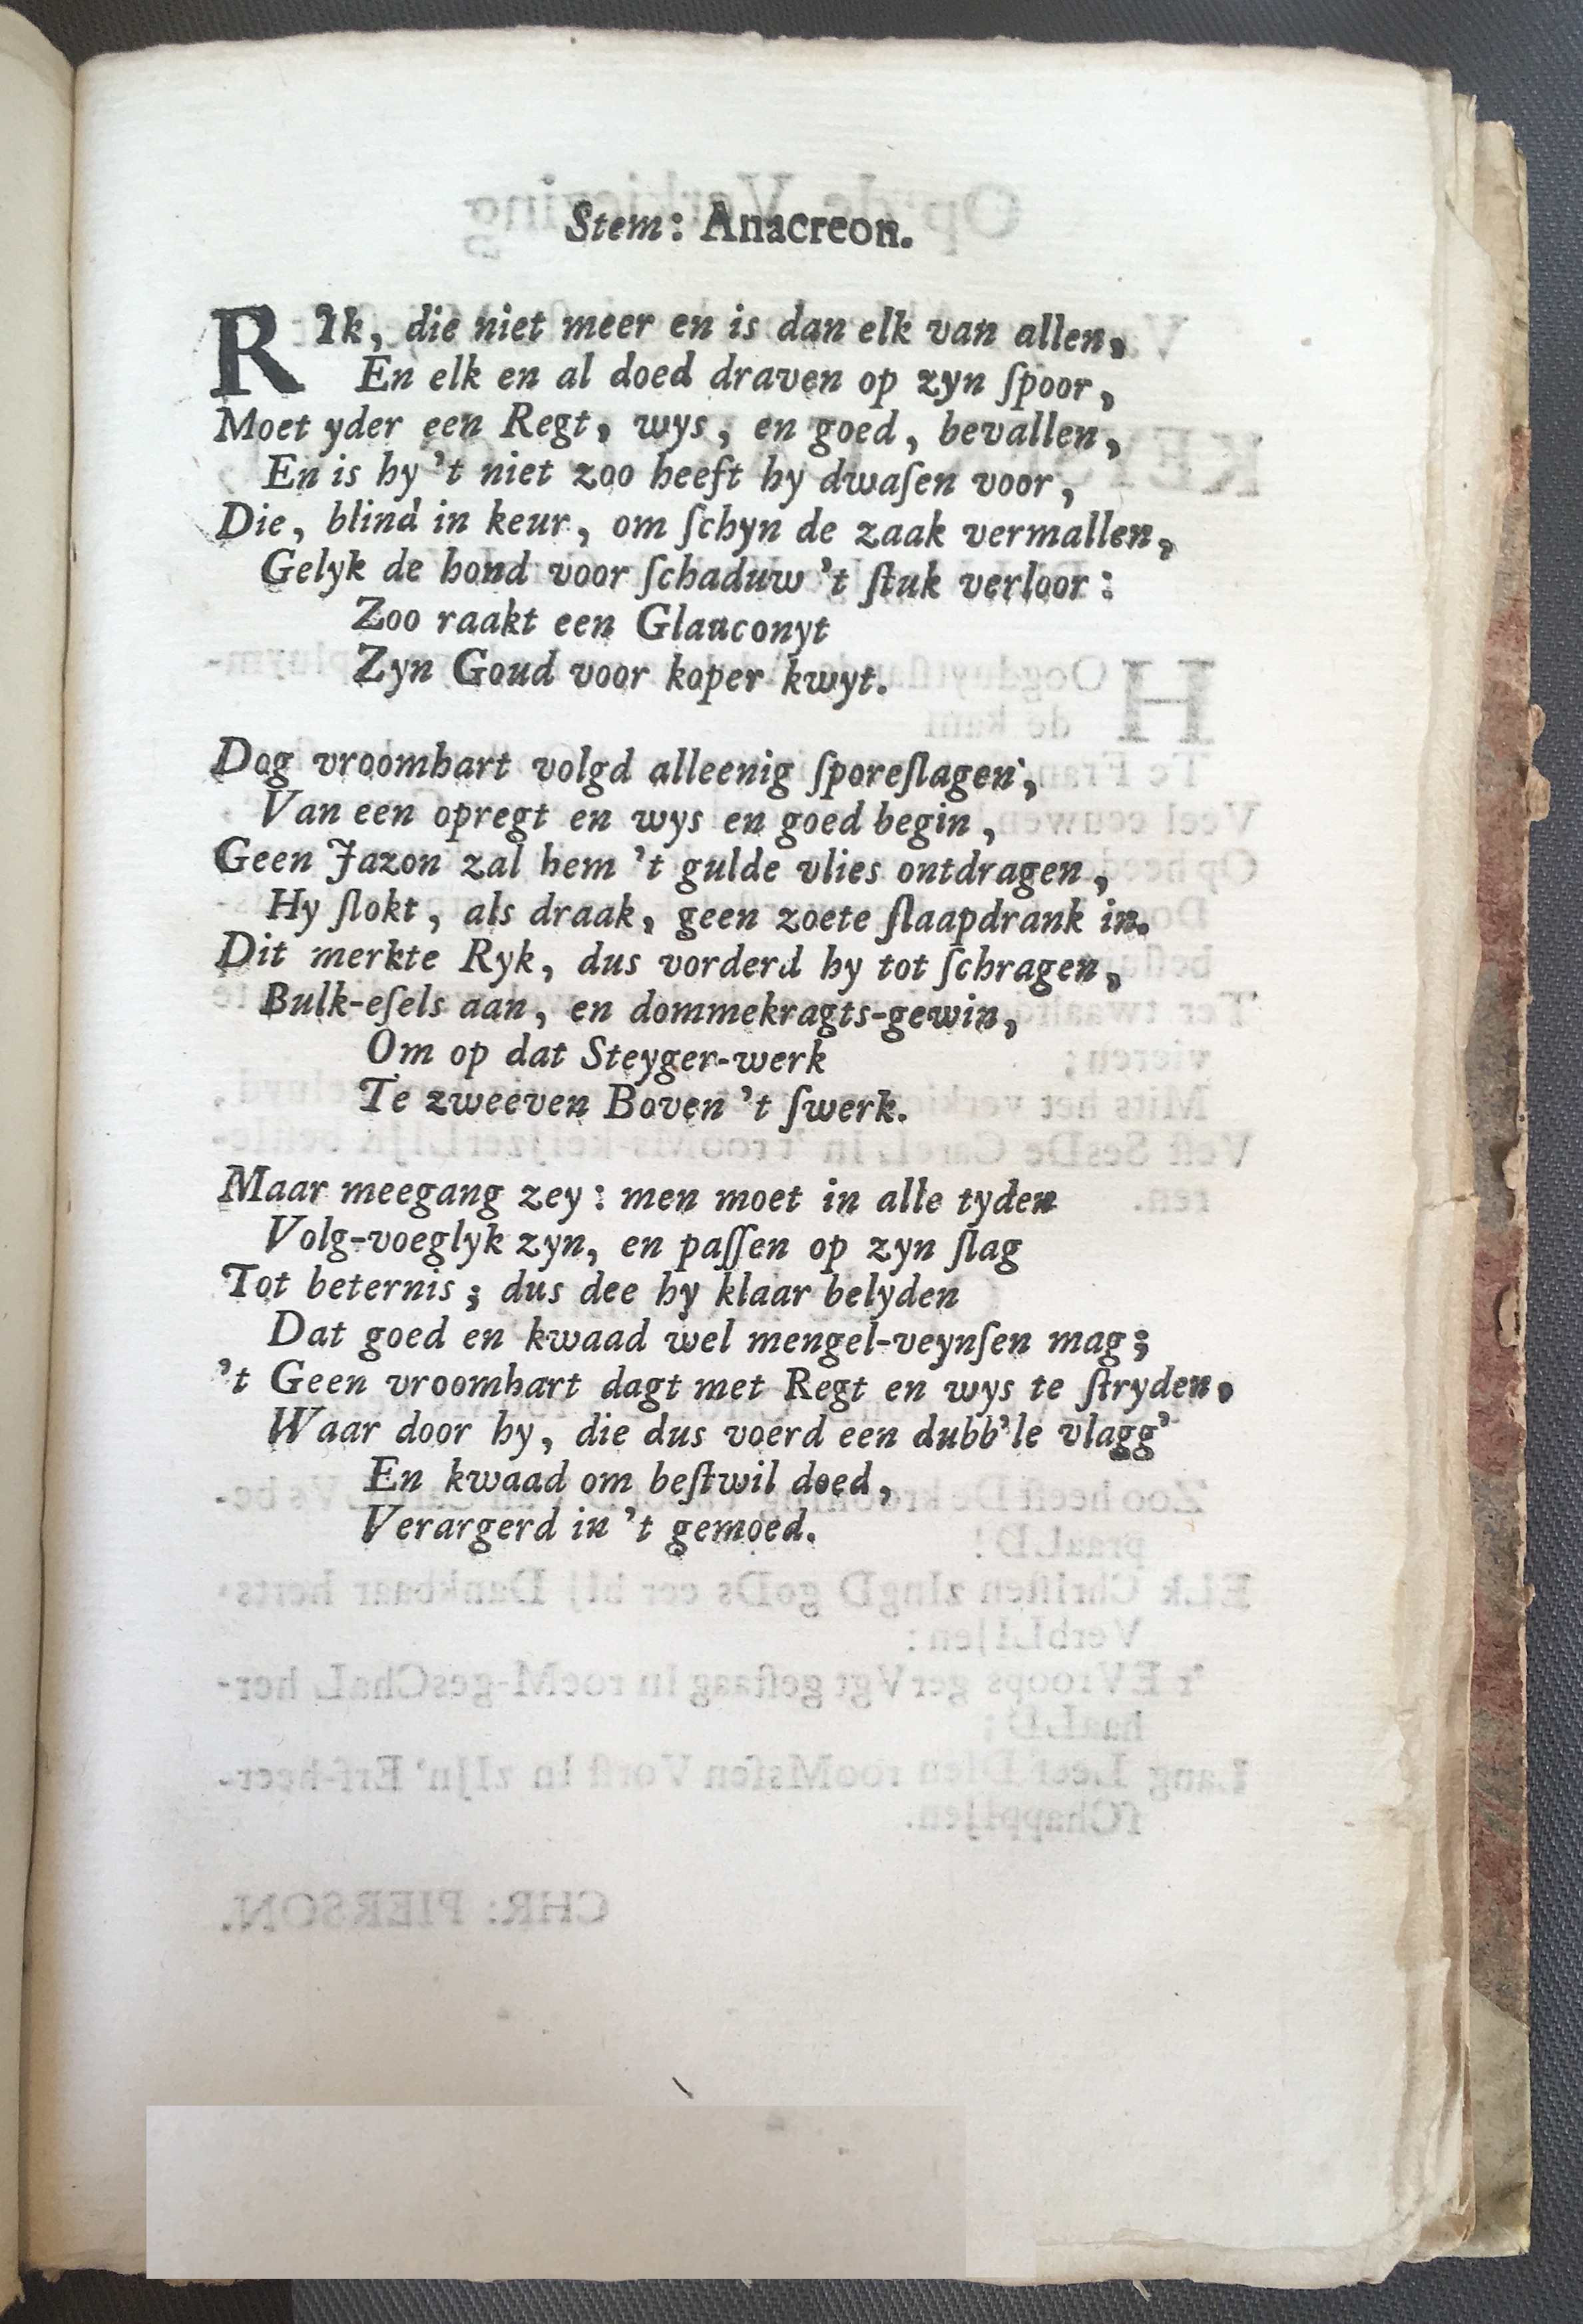 Stem: Anacreon.
RIk, die niet meer en is dan elk van allen,
En elk en al doed draven op zyn ſpoor,
Moet yder een Regt, wys, en goed, bevallen,
En is hy 't niet zoo heeft hy dwaſen voor,
Die, blind in keur, om ſchyn de zaak vermallen,
Gelyk de hond voor ſchaduw 't ſtuk verloor:
Zoo raakt een Glauconyt
Zyn Goud voor koper kwyt.
Dog vroomhart volgd alleenig ſporeſlagen,
Van een opregt en wys en goed begin,
Geen Jazon zal hem 't gulde vlies ontdragen,
Hy ſlokt, als draak, geen zoete ſlaapdrank in.
Dit merkte Ryk, dus vorderd hy tot ſchragen,
Bulk-eſels aan, en dommekragts-gewin,
Om op dat Steyger-werk
Te zweeven Boven 't ſwerk.
Maar meegang zey: men moet in alle tyden
Volg-voeglyk zyn, en paſſen op zyn ſlag
Tot beternis; dus dee hy klaar belyden
Dat goed en kwaad wel mengel-veynſen mag;
't Geen vroomhart dagt met Regt en wys te ſtryden,
Waar door hy, die dus voerd een dubb'le vlagg'
En kwaad om beſtwil doed,
Verargerd in 't gemoed.